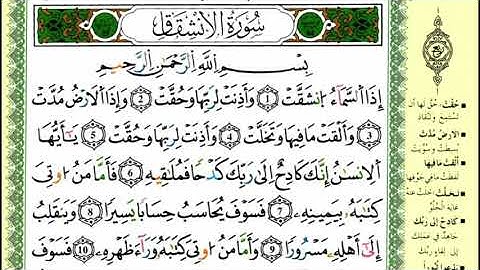 سُورَةُ الْاِنْشِقَاقِ
بِسْمِ اللَّهِ الرَّحْمَٰنِ الرَّحِيمِ
إِذَا السَّمَاءُ انشَقَّتْ ١ وَأَذِنَتْ لِرَبِّهَا وَحُقَّتْ ٢ وَإِذَا الْأَرْضُ مُدَّتْ
٣ وَأَلْقَتْ مَا فِيهَا وَتَخَلَّتْ ٤ وَأَذِنَتْ لِرَبِّهَا وَحُقَّتْ ٥ يَا أَيُّهَا
الْإِنسَانُ إِنَّكَ كَادِحٌ إِلَىٰ رَبِّكَ كَدْحًا فَمُلَاقِيهِ ٦ فَأَمَّا مَنْ أُوتِيَ
كِتَابَهُ بِيَمِينِهِ ٧ فَسَوْفَ يُحَاسَبُ حِسَابًا يَسِيرًا ٨ وَيَنقَلِبُ
إِلَىٰ أَهْلِهِ مَسْرُورًا ٩ وَأَمَّا مَنْ أُوتِيَ كِتَابَهُ وَرَاءَ ظَهْرِهِ ١٠ فَسَوْفَ
حُقَّتْ: حُقَّ لها أن
تستمع وتنقاد
الأرض مُدَّت
بُسطت وسُوِّيت
ألقت ما فيها
لفظت ما في جوفها
تخلّت: خلت عنه
غاية الخُلُوّ
كادح إلى ربك
جاهد في عملك
إلى لقاء ربك